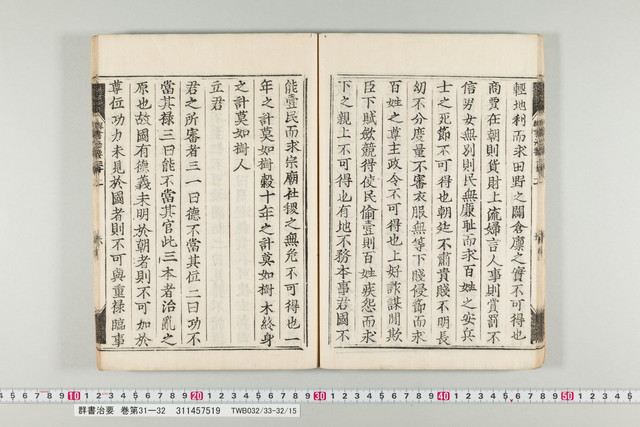 輕地利而求田野之闢倉廩之實不可得也
商賈在朝則貨財上流婦言人事則賞罰不
信男女無別則民無廉耻而求百姓之安兵
士之死節不可得也朝廷不肅貴賤不明長
幼不分度量不審衣服無等下賤侵節而求
百姓之尊主政令不可得也上好詐謀閒欺
臣下賦斂競得使民偷壹則百姓疾怨而求
下之親上不可得也有地不務本事君國不
能壹民而求宗廟社稷之無危不可得也一
年之計莫如樹穀十年之計莫如樹木終身
之計莫如樹人
立君
君之所審者三一曰德不當其位二曰功不
當其祿三曰能不當其官此三本者治亂之
原也故國有德義未明於朝者則不可加於
尊位功力未見於國者則不可與重祿臨事
10 20 30 40 50
群書治要 巻第31—32 311457519 TWB032/33-32/15